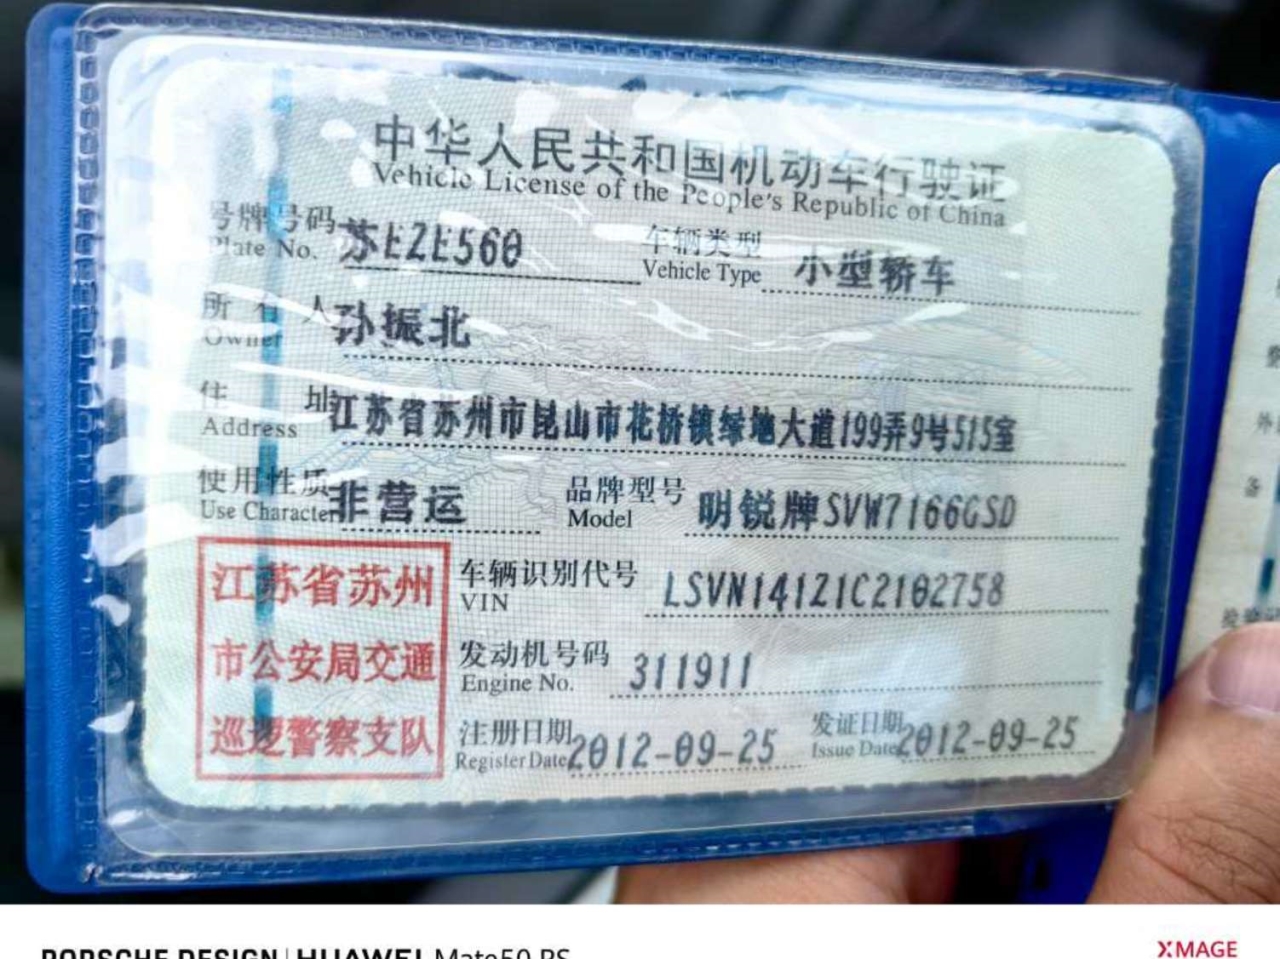 中华人民共和国机动车行驶证
Vehicle License of the People's Republic of China
号牌号码 苏EZE560 车辆类型 小型轿车
Plate No. Vehicle Type
所有人 孙振北
Owner
住址 江苏省苏州市昆山市花桥镇绿地大道199弄9号515室
Address
使用性质 非营运 品牌型号 明锐牌SVW7166GSD
Use Character Model
江苏省苏州
市公安局交通
巡逻警察支队
车辆识别代号 LSVN141Z1C2102758
VIN
发动机号码 311911
Engine No.
注册日期 2012-09-25 发证日期 2012-09-25
Register Date Issue Date
外
备
PORSCHE DESIGN | HUAWEI Mate50 RS
XMAGE